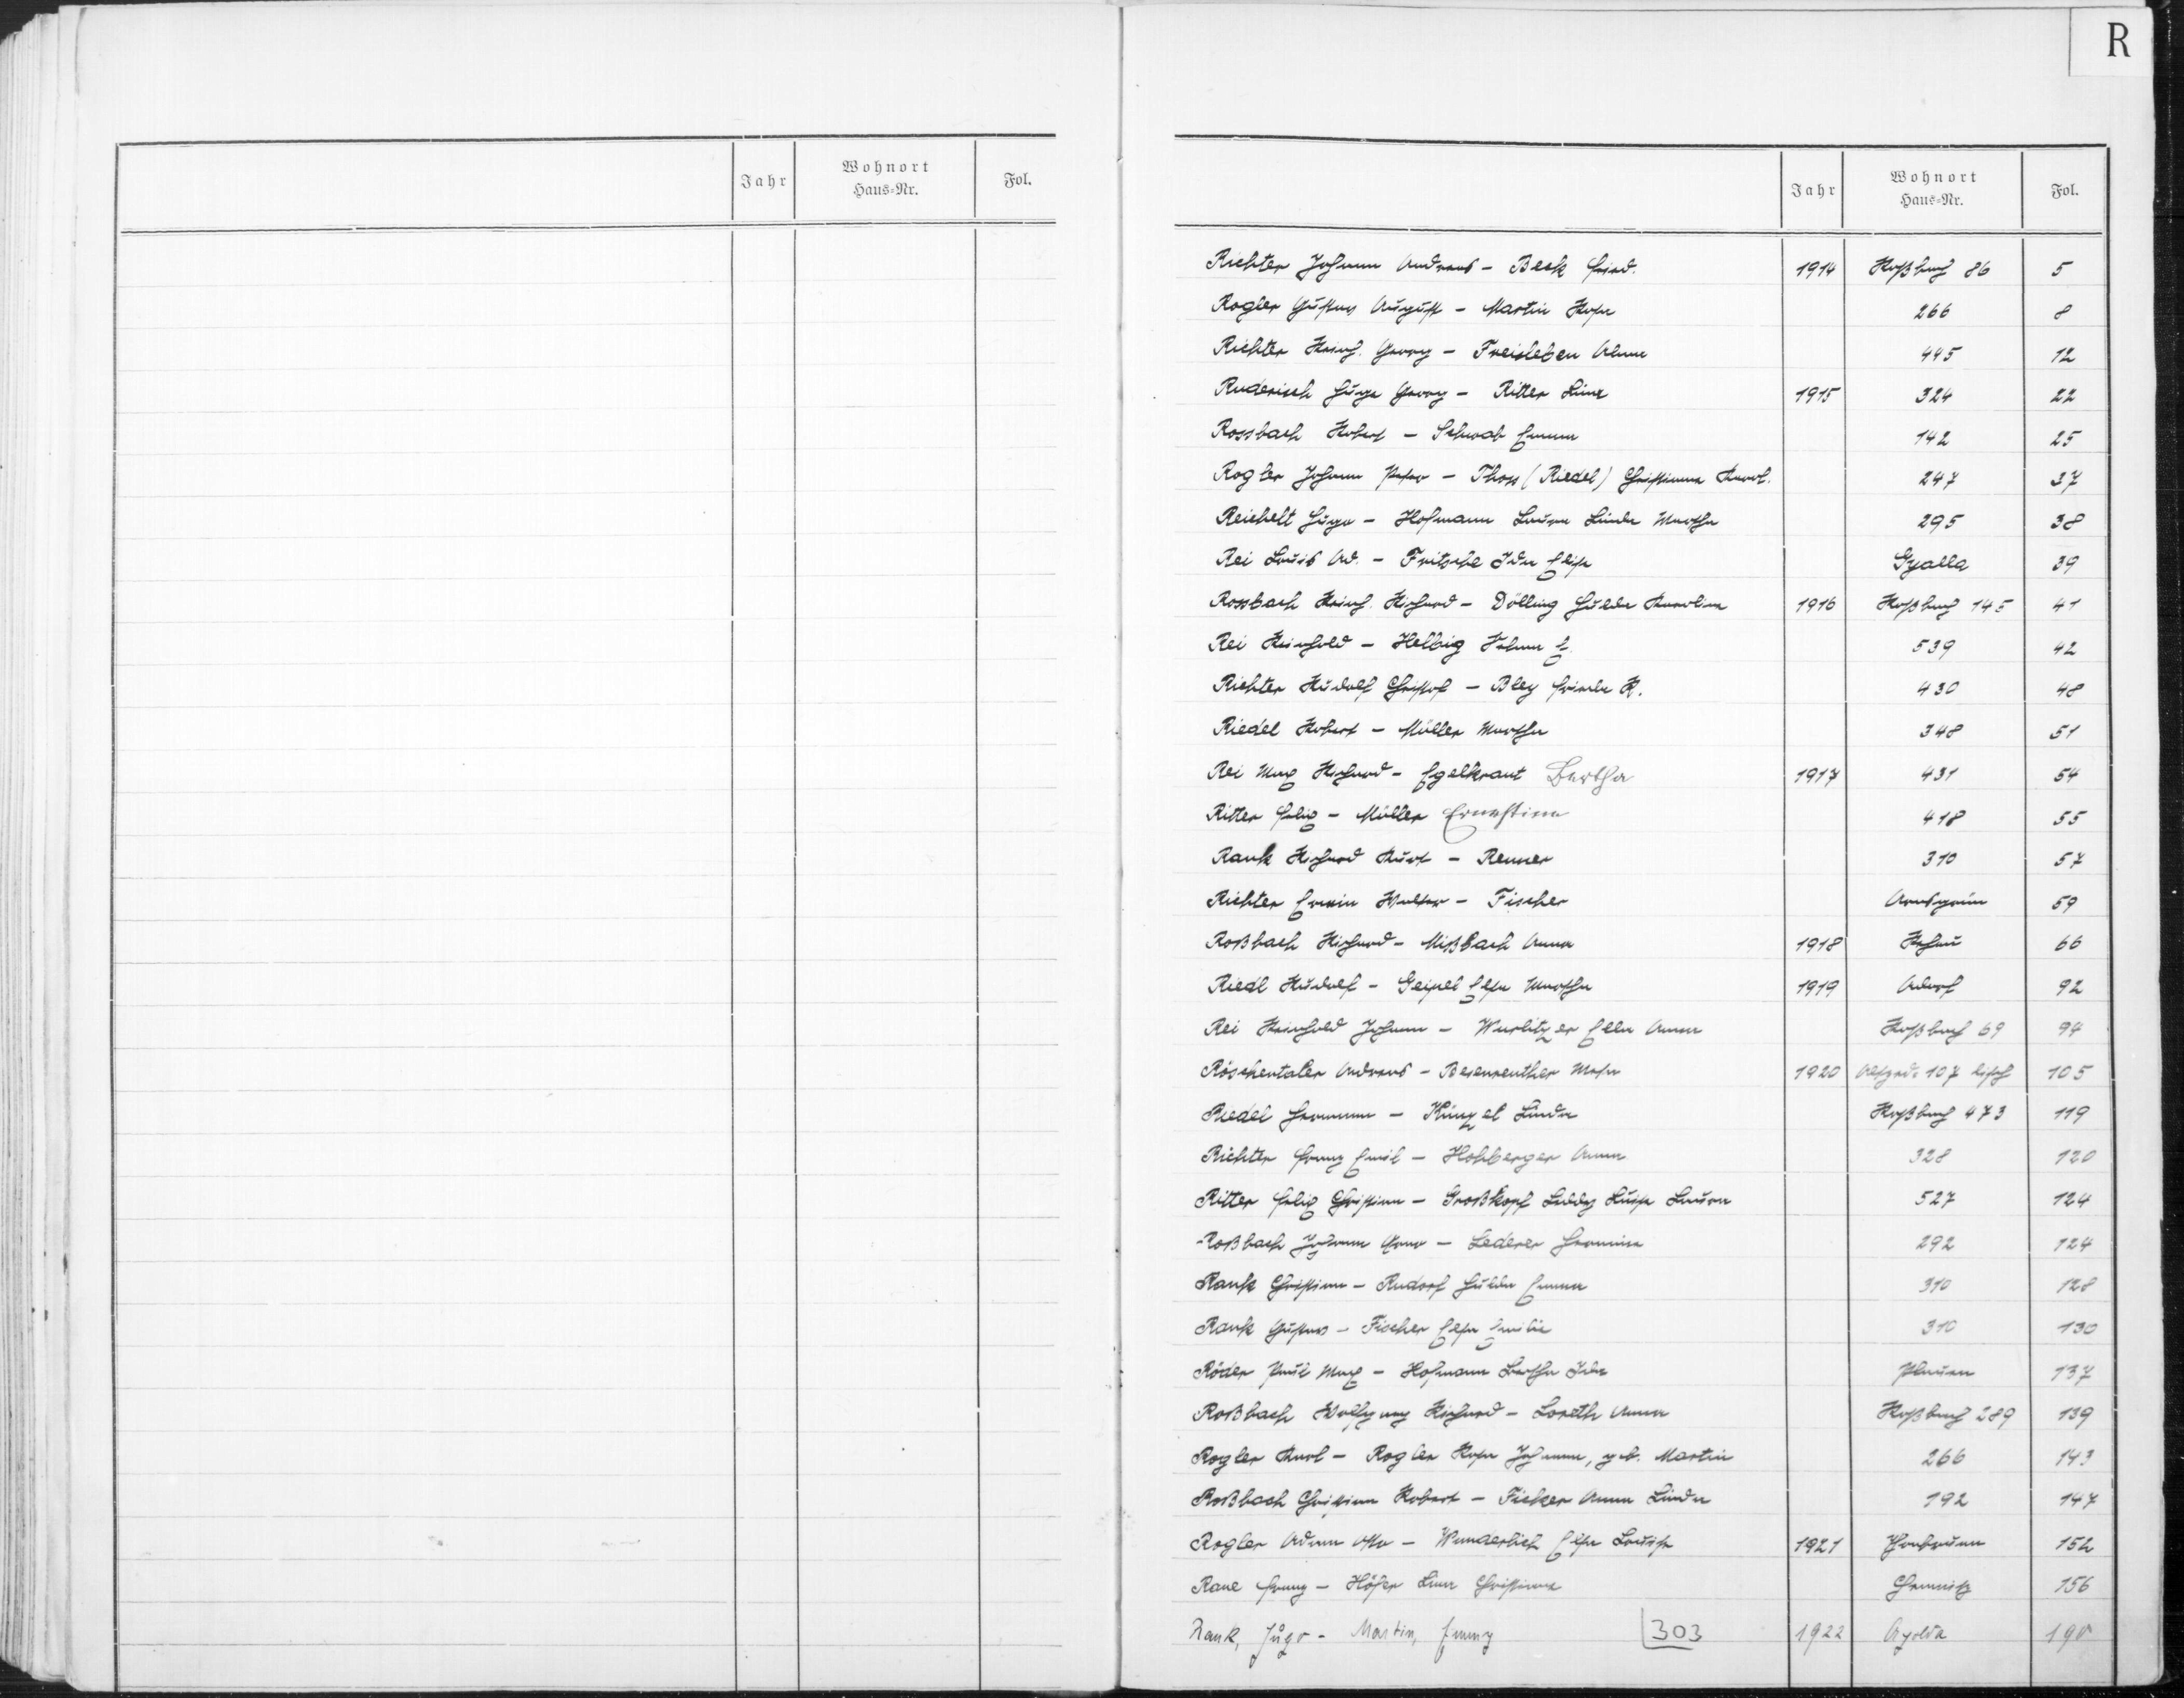 R
Jahr Wohnort Haus-Nr. Fol.
Jahr Wohnort Haus-Nr. Fol.
Richter Johann Andreas - Beck Fried. 1914 Roßbach 86 5
Rogler Gustav August - Martin Rosa 266 8
Richter Heinr. Georg - Freisleben Alma 445 12
Ruderisch Hugo Georg - Ritter Lina 1915 324 22
Rossbach Robert - Schwab Emma 142 25
Rogler Johann Peter - Thoss (Riedel) Christiana Karol. 247 37
Reichelt Hugo - Hofmann Laura Linda Martha 295 38
Rei Louis Ad. - Fritsche Ida Elise Gyalla 39
Rossbach Heinr. Richard - Dölling Hulda Karolina 1916 Roßbach 145 41
Rei Reinhold - Helbig E. 539 42
Richter Rudolf Christof - Bley Frieda R. 430 48
Riedel Robert - Müller Martha 348 51
Rei Max Richard - Egelkraut Bertha 1917 431 54
Ritter Felix - Müller Ernestine 418 55
Rank Richard Kurt - Renner 310 57
Richter Erwin Walter - Fischer Arnsgrün 59
Roßbach Richard - Mißbach Anna 1918 Rehau 66
Riedl Rudolf - Geipel Elsa Martha 1919 Adorf 92
Rei Reinhold Johann - Wurlitzer Ella Anna Roßbach 69 94
Röschentaler Andreas - Besenreuther Meta 1920 107 105
Riedel Hermann - Künzel Linda Roßbach 473 119
Richter Franz Emil - Hohberger Anna 328 120
Ritter Felix Christian - Großkopf Luise Laura 527 124
Roßbach Johann - Lederer Hermine 292 124
Rank Christian - Rudorf Hulda Emma 310 128
Rank Gustav - Fischer Elsa Emilie 310 130
Röder Paul Max - Hofmann Bertha Ida Plauen 137
Roßbach Wolfgang Richard - Loreth Anna Roßbach 289 139
Rogler Karl - Rogler Rosa Johanna, geb. Martin 266 143
Roßbach Christian Robert - Ficker Anna Linda 192 147
Rogler Adam Otto - Wunderlich Elsa Louise 1921 152
Rane Franz - Höfer Lina Christiana Chemnitz 156
Rank, Hugo - Martin, Emmy 303 1922 Apolda 190